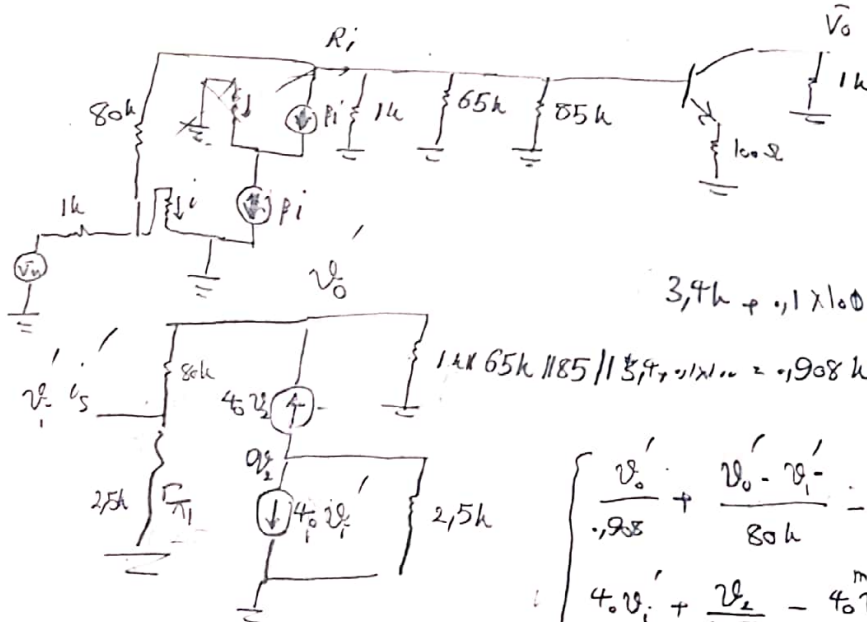 Ri
V̄o
80k
βi
1k
65k
85k
1k
100Ω
1k
i
βi
Vin
v'o
3,4k + ,1×100
v'i is'
80k
40v2
1k∥65k∥85∥3,4+,1×100 = ,908k
2,5k
rπ1
v2
40v'i
2,5k
v'o/,908 + (v'o - v'i)/80k =
40v'i + v2